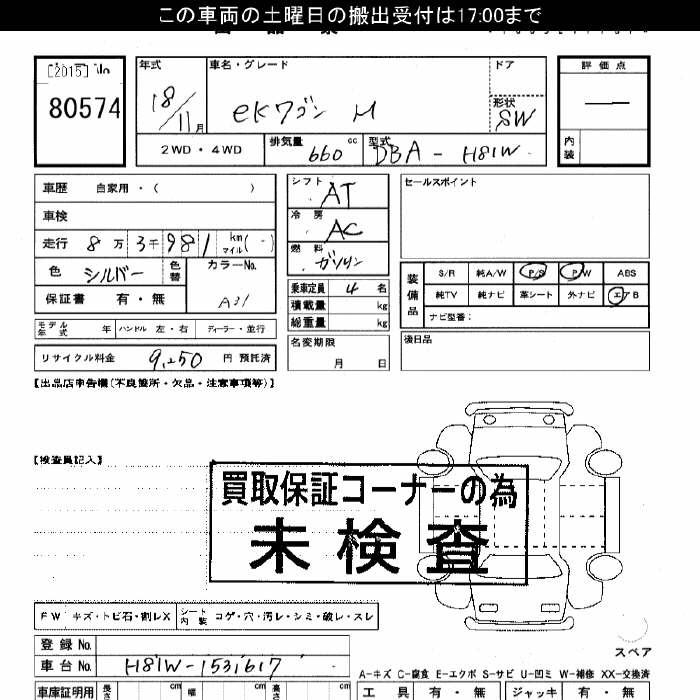 この車両の土曜日の搬出受付は17:00まで
[2015] No
80574
年式
18/11月
車名・グレード
eKワゴン M
ドア
形状
SW
評価点
内装
2WD・4WD
排気量 660 cc
型式 DBA - H81W
車歴 自家用・( )
車検
走行 8万3千981 km マイル( - )
色 シルバー 色替
カラーNo.
A31
保証書 有・無
モデル年式 年 ハンドル 左・右 ディーラー・並行
リサイクル料金 9,250 円 預託済
シフト AT
冷房 AC
燃料 ガソリン
乗車定員 4 名
積載量 kg
総重量 kg
名変期限
月 日
セールスポイント
装備品
S/R 純A/W P/S P/W ABS
純TV 純ナビ 革シート 外ナビ エアB
ナビ型番:
後日品
【出品店申告欄(不良箇所・欠品・注意事項等)】
【検査員記入】
買取保証コーナーの為
未検査
FW キズ・トビ石・割レX シート内装 コゲ・穴・汚レ・シミ・破レ・スレ
登録No.
車台No. H81W-1531617
スペア
A-キズ C-腐食 E-エクボ S-サビ U-凹ミ W-補修 XX-交換済
車庫証明用 長さ cm 幅 cm 高さ cm
工具 有・無 ジャッキ 有・無